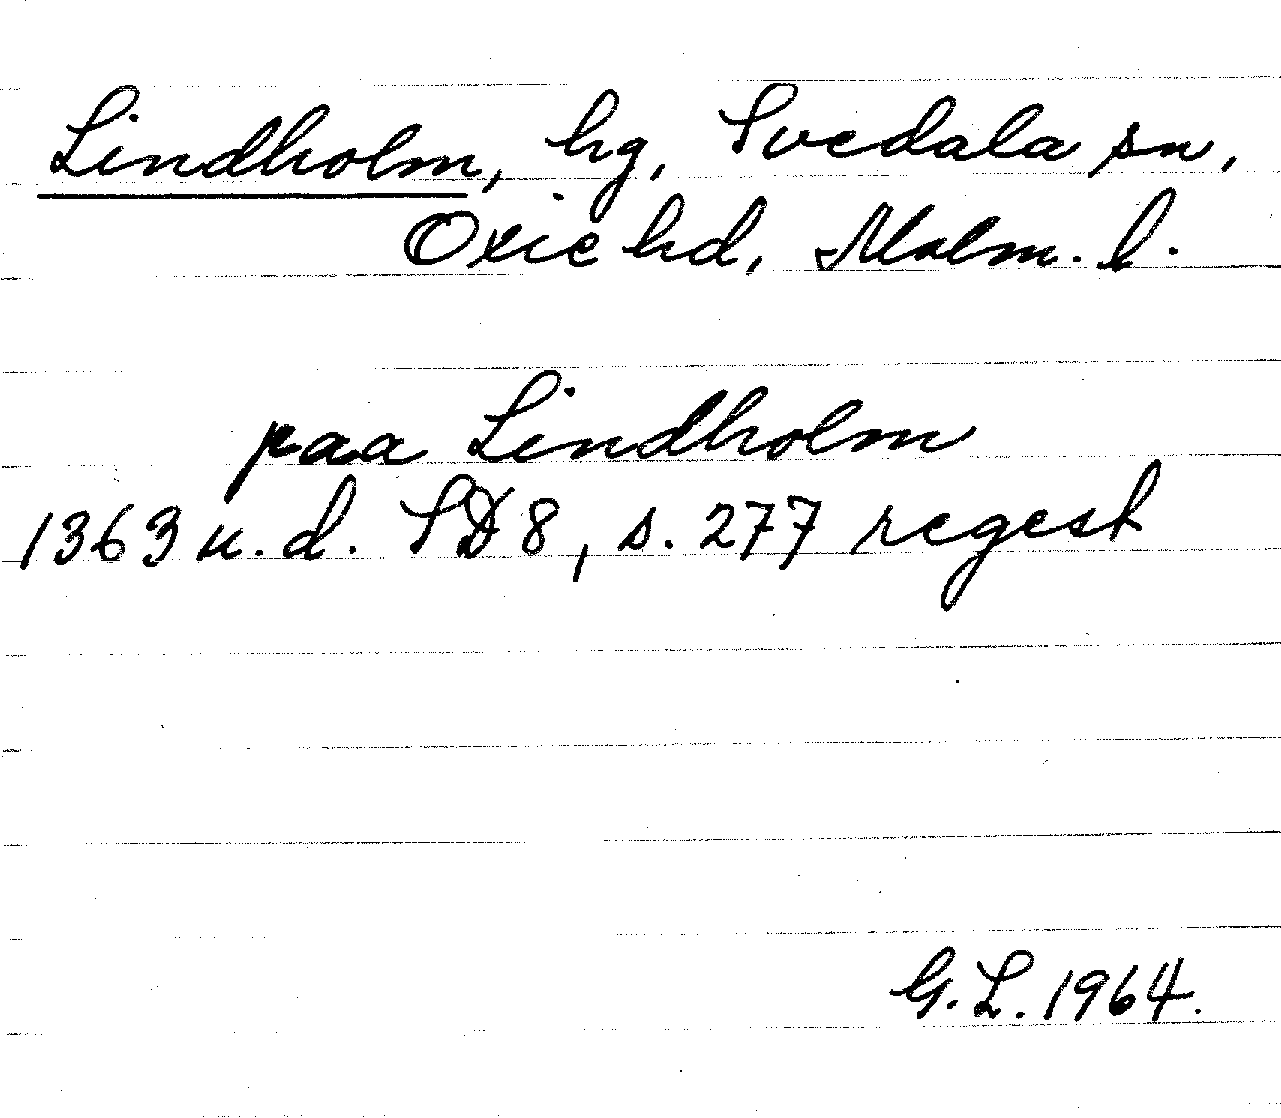 Lindholm, hg, Svedala sn,
Oxie hd, Malm. l.
paa Lindholm
1363 u. d. SD 8, s. 277 regest
G. L. 1964.